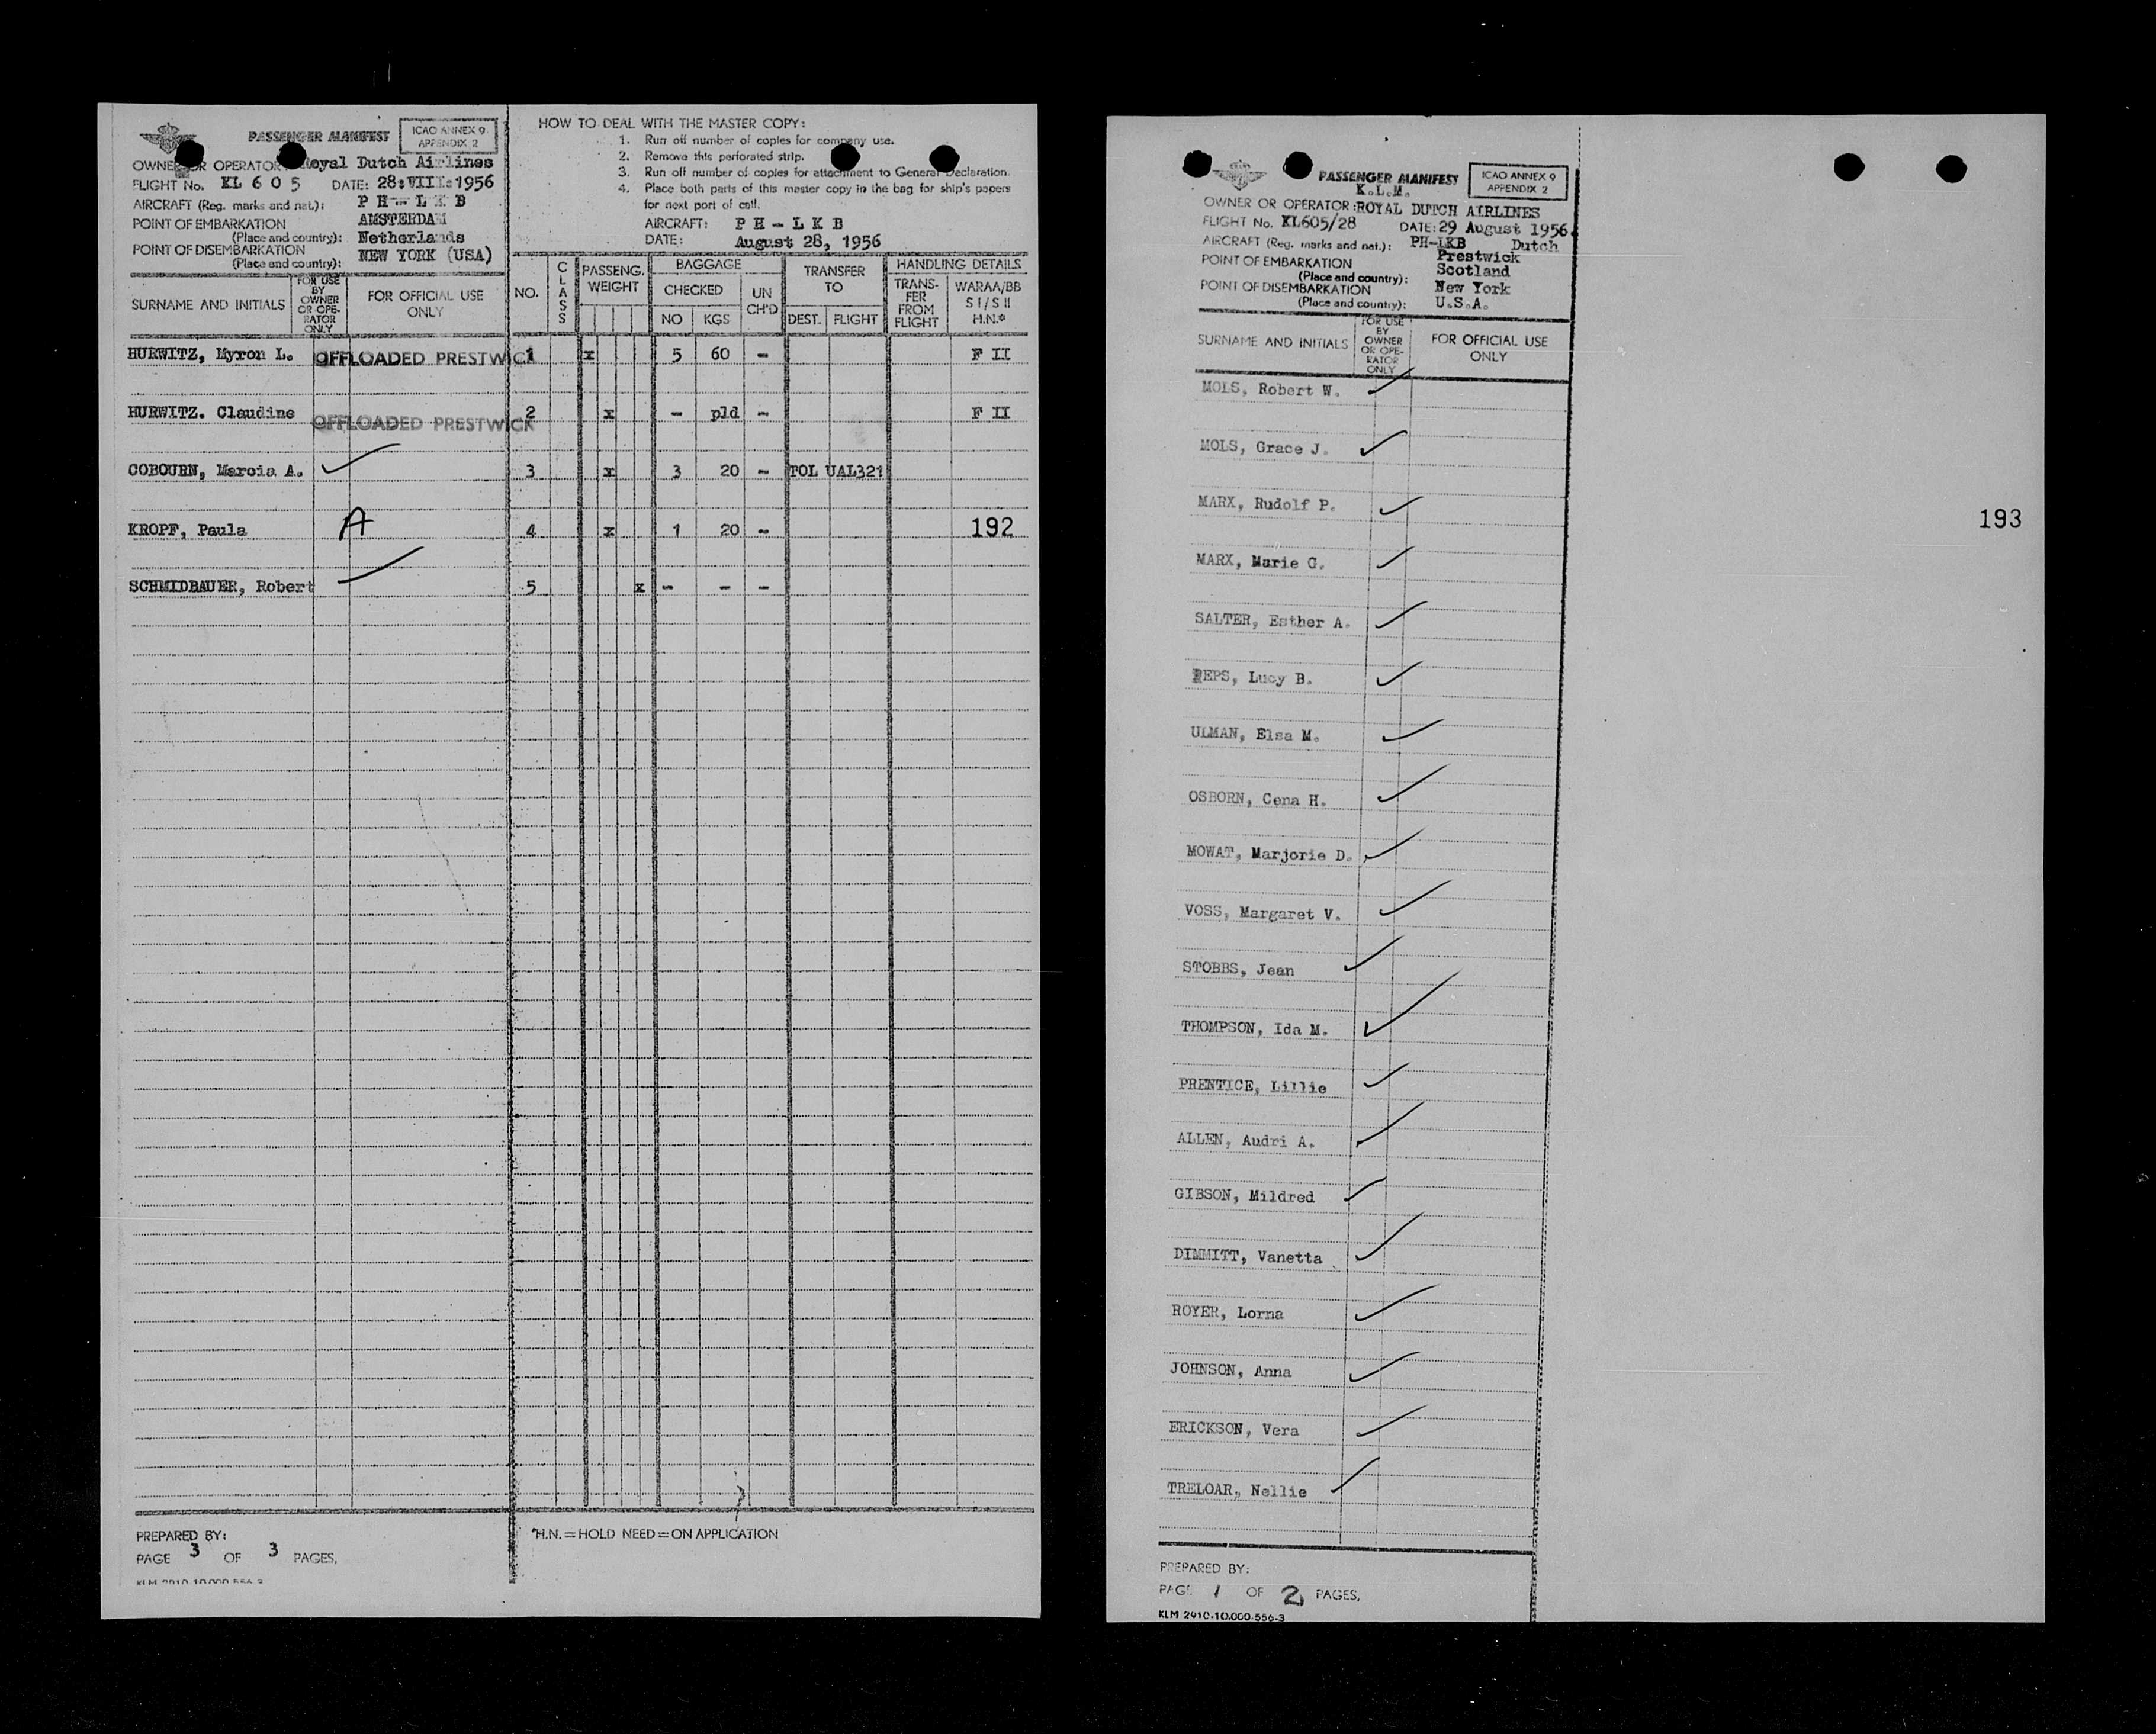 PASSENGER MANIFEST
ICAO ANNEX 9
APPENDIX 2
OWNER OR OPERATOR: Royal Dutch Airlines
FLIGHT No. KL 6 0 5 DATE: 28:VIII:1956
AIRCRAFT (Reg. marks and nat.): P H - L K B
POINT OF EMBARKATION AMSTERDAM
(Place and country): Netherlands
POINT OF DISEMBARKATION
(Place and country): NEW YORK (USA)
HOW TO DEAL WITH THE MASTER COPY:
1. Run off number of copies for company use.
2. Remove this perforated strip.
3. Run off number of copies for attachment to General Declaration.
4. Place both parts of this master copy in the bag for ship's papers
for next port of call.
AIRCRAFT: P H - L K B
DATE: August 28, 1956
SURNAME AND INITIALS
FOR USE BY OWNER OR OPE- RATOR ONLY
FOR OFFICIAL USE ONLY
NO.
CLASS
PASSENG. WEIGHT
BAGGAGE
CHECKED
NO KGS
UN CH'D
TRANSFER TO
DEST. FLIGHT
HANDLING DETAILS
TRANS- FER FROM FLIGHT
WARAA/BB S I/S II H.N.*
HURWITZ, Myron L. OFFLOADED PRESTWICK 1 x 5 60 - F II
HURWITZ. Claudine OFFLOADED PRESTWICK 2 x - pld - F II
COBOURN, Marcia A. 3 x 3 20 - TOL UAL321
KROPF, Paula A 4 x 1 20 - 192
SCHMIDBAUER, Robert 5 x - - -
PREPARED BY:
PAGE 3 OF 3 PAGES,
*H.N. = HOLD NEED = ON APPLICATION
KLM 2910-10.000-556-3
PASSENGER MANIFEST
ICAO ANNEX 9
APPENDIX 2
K.L.M.
OWNER OR OPERATOR: ROYAL DUTCH AIRLINES
FLIGHT No. KL605/28 DATE: 29 August 1956.
AIRCRAFT (Reg. marks and nat.): PH-LKB Dutch
POINT OF EMBARKATION Prestwick
(Place and country): Scotland
POINT OF DISEMBARKATION New York
(Place and country): U.S.A.
SURNAME AND INITIALS
FOR USE BY OWNER OR OPE- RATOR ONLY
FOR OFFICIAL USE ONLY
MOLS, Robert W.
MOLS, Grace J.
MARX, Rudolf P.
193
MARX, Marie G.
SALTER, Esther A.
EPS, Lucy B.
ULMAN, Elsa M.
OSBORN, Cena H.
MOWAT, Marjorie D.
VOSS, Margaret V.
STOBBS, Jean
THOMPSON, Ida M.
PRENTICE, Lillie
ALLEN, Audri A.
GIBSON, Mildred
DIMMITT, Vanetta
ROYER, Lorna
JOHNSON, Anna
ERICKSON, Vera
TRELOAR, Nellie
PREPARED BY:
PAGE 1 OF 2 PAGES,
KLM 2910-10.000-556-3